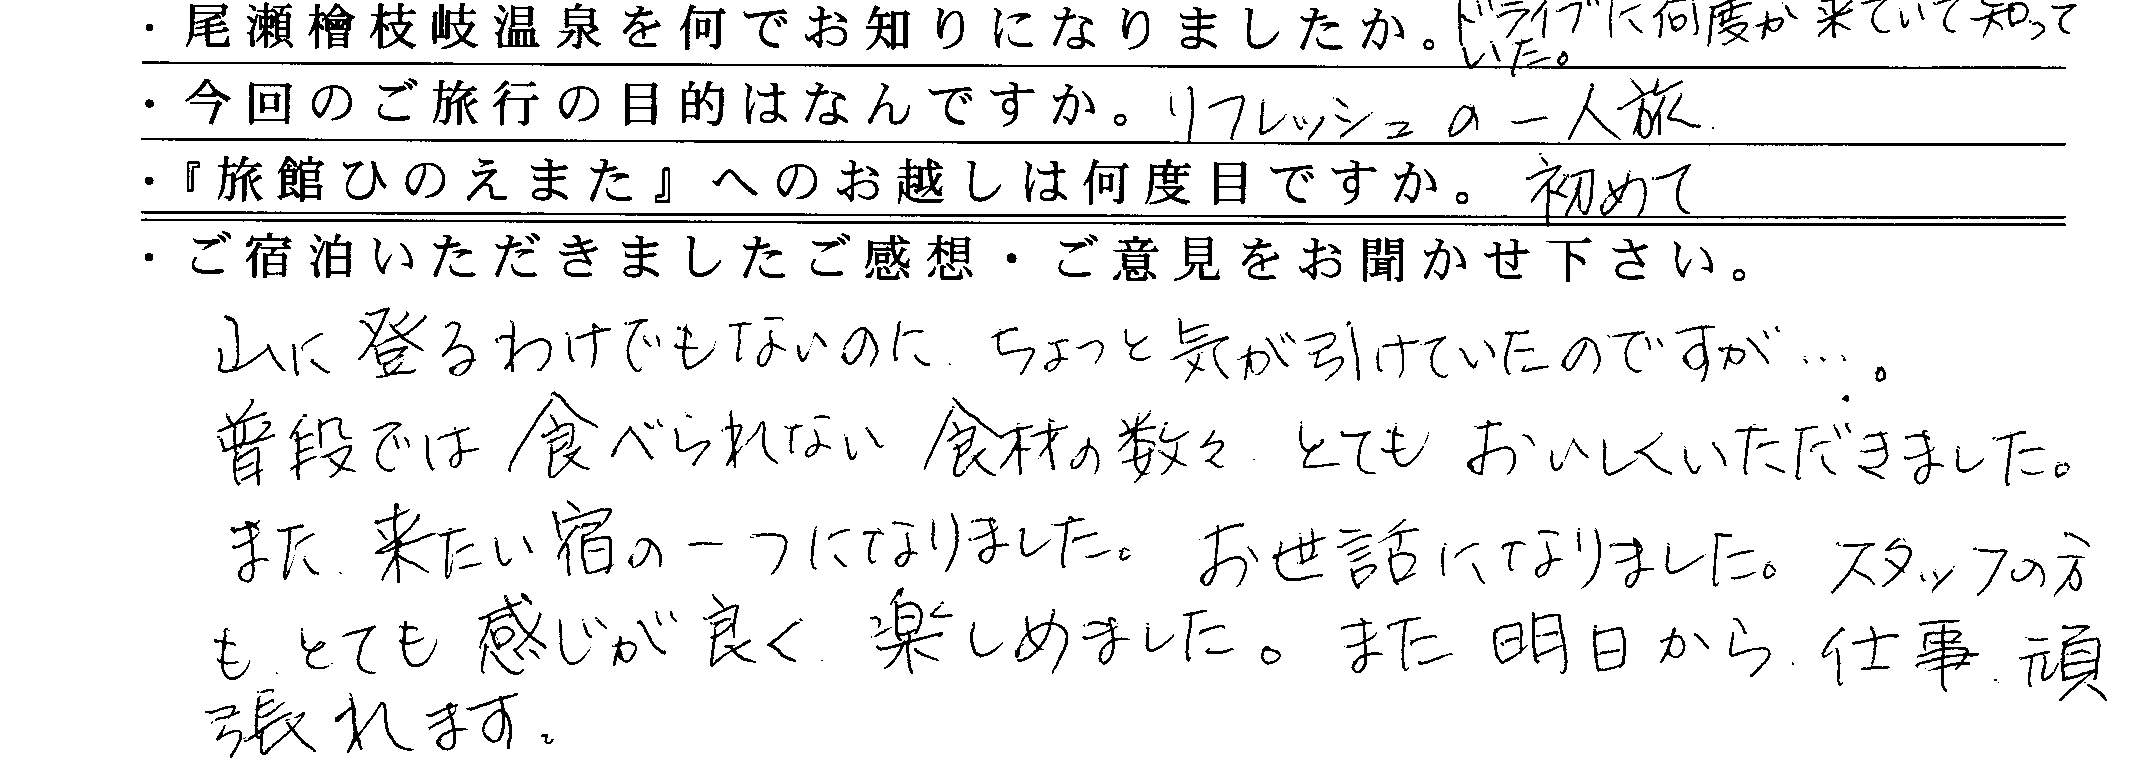 ・尾瀬檜枝岐温泉を何でお知りになりましたか。ドライブに何度か来ていて知って
いた。
・今回のご旅行の目的はなんですか。リフレッシュの一人旅.
・『旅館ひのえまた』へのお越しは何度目ですか。初めて
・ご宿泊いただきましたご感想・ご意見をお聞かせ下さい。
山に登るわけでもないのに、ちょっと気が引けていたのですが…。
普段では食べられない食材の数々、とてもおいしくいただきました。
また、来たい宿の一つになりました。お世話になりました。スタッフの方
も、とても感じが良く、楽しめました。また明日から、仕事、頑
張れます。